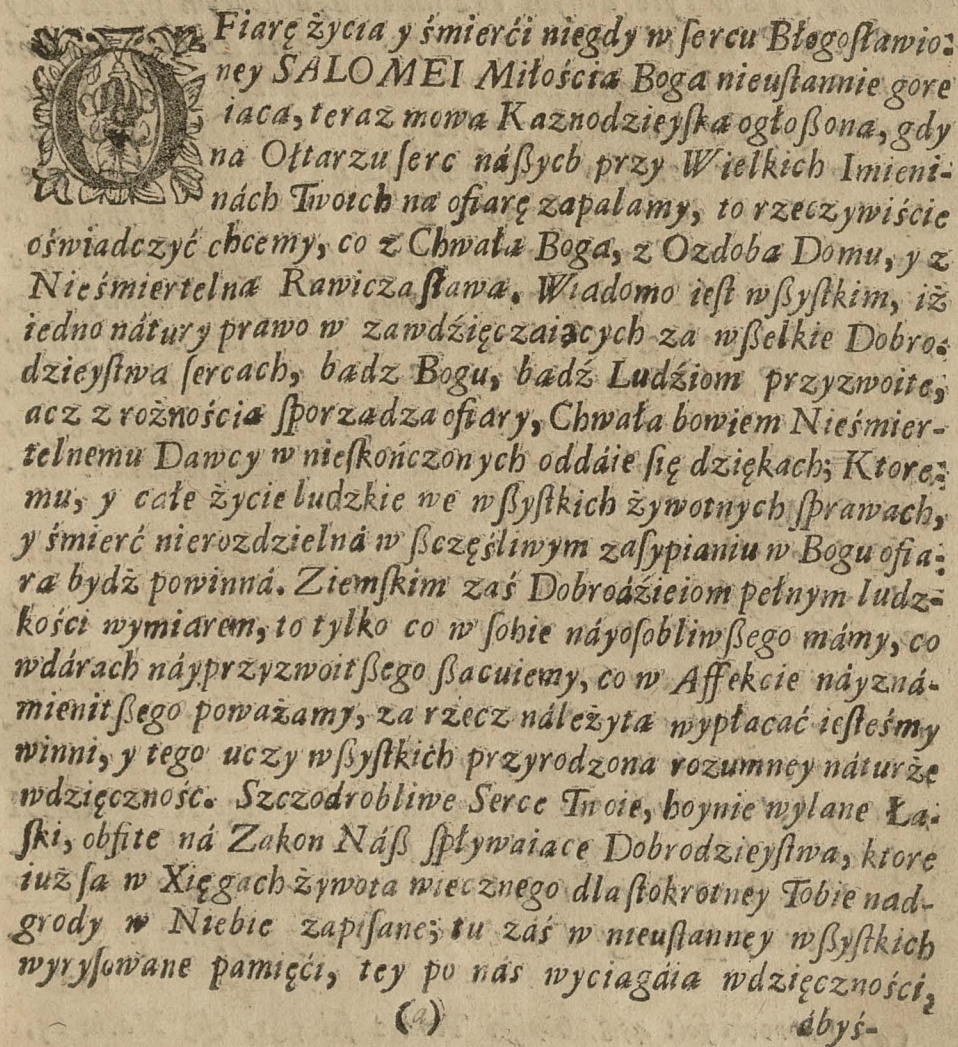 OFiarę życia y śmierći niegdy w ſercu Błogoſławio:
ney SALOMEI Miłościa Boga nieuſtannie gore
iaca, teraz mowa Kaznodzieyſka ogłoßona, gdy
na Ołtarzu ſerc náßych przy Wielkich Imieni-
nách Twoich na ofiarę zapalamy, to rzeczywiście
oświadczyć chcemy, co z Chwała Boga, z Ozdoba Domu, y z
Nieśmiertelna Rawicza ſława. Wiadomo ieſt wßyſtkim, iż
iedno nátury prawo w zawdźięczaiących za wßelkie Dobro:
dzieyſtwa ſercach, badz Bogu, badź Ludźiom przyzwoite,
acz z rożnościa ſporzadza ofiary, Chwała bowiem Nieśmier-
telnemu Dawcy w nieſkończonych oddáie ſię dziękach; Ktore:
mu, y całe życie ludzkie we wßyſtkich żywotnych ſprawach,
y śmierć nierozdzielná w ßczęśliwym zaſypianiu w Bogu ofia:
ra bydż powinná. Ziemſkim zaś Dobrodźieiom pełnym ludz-
kości wymiarem, to tylko co w ſobie náyoſobliwßego mámy, co
wdárach náyprzyzwoitßego ßacuiemy, co w Affekcie náyzná-
mienitßego poważamy, za rzecz náleżyta wypłacać ieſteśmy
winni, y tego uczy wßyſtkich przyrodzona rozumney náturże
wdzięczność. Szczodrobliwe Serce Twoie, hoynie wylane Ła-
ſki, obfite ná Zakon Náß ſpływaiace Dobrodzieyſtwa, ktore
iuż ſa w Xięgach żywota wiecznego dla ſtokrotney Tobie nad-
grody w Niebie zapiſane; tu záś w nieuſtanney wßyſtkich
wyryſowane pamięći, tey po nas wyciagáia wdzięczności,
(a)
ábyś-